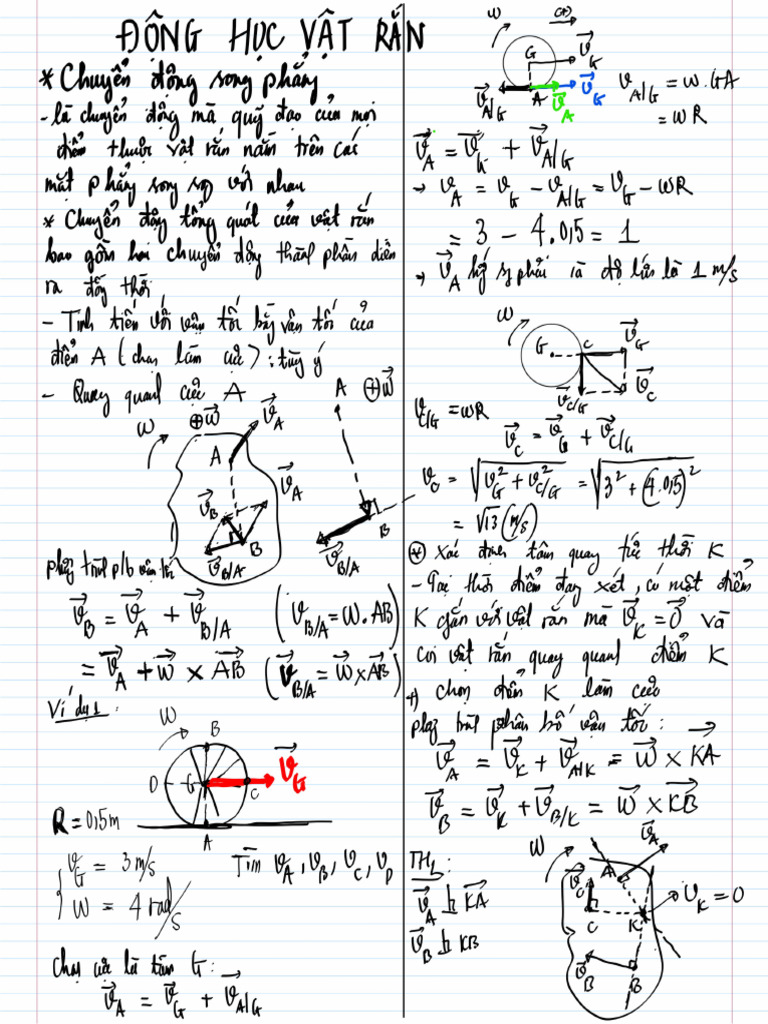 ĐỘNG HỌC VẬT RẮN
* Chuyển động song phẳng
- là chuyển động mà quỹ đạo của mọi
điểm thuộc vật rắn nằm trên các
mặt phẳng song song với nhau
* Chuyển động tổng quát của vật rắn
bao gồm hai chuyển động thành phần diễn
ra đồng thời
- Tịnh tiến với vận tốc bằng vận tốc của
điểm A (chọn làm cực) : tùy ý
- Quay quanh cực A
ω ⊕ω⃗ v⃗_A
A
v⃗_B v⃗_A
B
v⃗_B/A
A ⊕ω⃗
B
v⃗_B/A
phg trình p/b vận tốc
v⃗_B = v⃗_A + v⃗_B/A (v_B/A = ω.AB)
= v⃗_A + ω⃗ × AB⃗ (v⃗_B/A = ω⃗ × AB⃗)
Ví dụ 1:
ω B
D G C v⃗_G
A
R = 0,5m
v_G = 3 m/s
ω = 4 rad/s
Tìm v_A, v_B, v_C, v_D
Chọn cực là tâm G:
v⃗_A = v⃗_G + v⃗_A/G
ω (+)
G v⃗_G
v⃗_A/G A v⃗_A v⃗_G
v_A/G = ω.GA
= ωR
v⃗_A = v⃗_G + v⃗_A/G
→ v_A = v_G - v_A/G = v_G - ωR
= 3 - 4.0,5 = 1
→ v⃗_A hg sg phải và độ lớn là 1 m/s
ω
G C v⃗_G
v⃗_C/G v⃗_C
v_C/G = ωR
v⃗_C = v⃗_G + v⃗_C/G
v_C = √(v_G² + v_C/G²) = √(3² + (4.0,5)²)
= √13 (m/s)
⊛ Xác định tâm quay tức thời K
- Tại thời điểm đang xét, có một điểm
K gắn với vật rắn mà v⃗_K = 0⃗ và
coi vật rắn quay quanh điểm K
+) chọn điểm K làm cực
phg trình phân bố vận tốc :
v⃗_A = v⃗_K + v⃗_A/K = ω⃗ × KA⃗
v⃗_B = v⃗_K + v⃗_B/K = ω⃗ × KB⃗
TH1:
v⃗_A ⊥ KA⃗
v⃗_B ⊥ KB
ω v⃗_A
v⃗_C A
C K v_K = 0
v⃗_B B